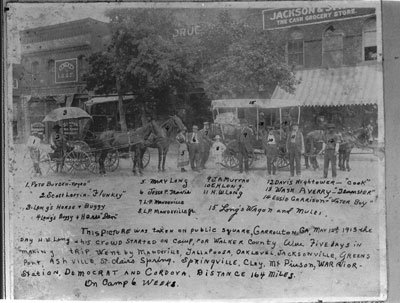 JACKSON & S
THE CASH GROCERY STORE
DRUG
1. Pete Burden - Negro
2. Scott Laftin - "Flunkey"
3. Long's Horse & Buggy
4. Long's Buggy & Horse "Dan"
5. May Long
6. Jesse P. Travis
7. L. Mandeville
8. L.P. Mandeville Jr.
9. J.A. Murrah
10. E.H. Long
11. H.W. Long
12 Davis Hightower - "Cook"
13 Wash Averry - "Teamster"
14 Eddie Garrison - "Water Boy"
15 Long's Wagon and Mules.
This picture was taken on public square, Carrollton, Ga, May 10th 1915 - the
day H.W. Long & his crowd started on camp, for Walker County Ala. Five days in
making trip went by Mandeville, Tallapoosa, Oaklevel, Jacksonville, Greens
Port, Ashville, St. Clair Spring, Springville, Clay, Mt Pinson, Warrior-
Station, Democrat and Cordova. Distance 164 miles.
On Camp 6 Weeks.